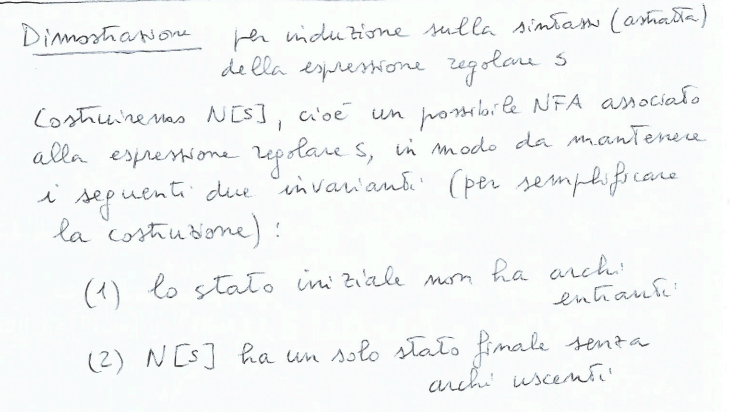 Dimostrazione per induzione sulla sintassi (astratta)
della espressione regolare s
Costruiremo N[s], cioè un possibile NFA associato
alla espressione regolare s, in modo da mantenere
i seguenti due invarianti (per semplificare
la costruzione):
(1) lo stato iniziale non ha archi
entranti
(2) N[s] ha un solo stato finale senza
archi uscenti